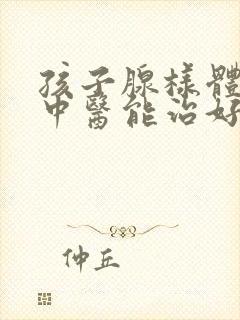 孩子腺樣體
中醫能治好
仲丘